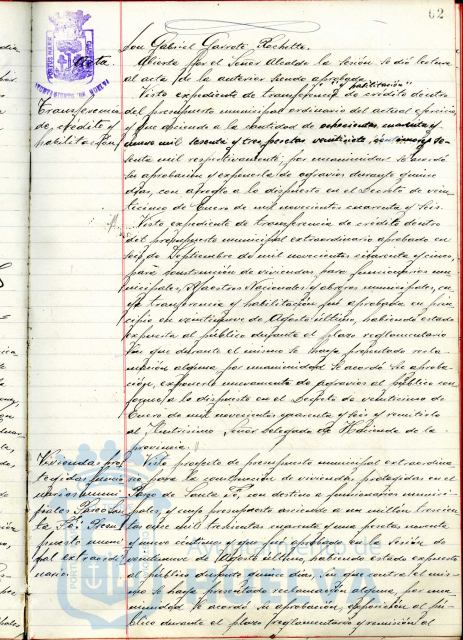 62
Don Gabriel Garrote Rochette.
Acta.
Abierta por el Señor Alcalde la Sesión se dió lectura
al acta de la anterior siendo aprobada.
y habilitación
Transferencia
de crédito y
habilitación
Visto expediente de transferencia de crédito dentro
del presupuesto municipal ordinario del actual ejercicio,
y que asciende a la cantidad de ochocientas cuarenta y
nueve mil sesenta y tres pesetas veintisiete
senta mil respectivamente; por unanimidad se acordó
su aprobación y exponerla de agravios durante quince
días, con apego a lo dispuesto en el Decreto de vein-
ticinco de Enero de mil novecientos cuarenta y seis.
Visto expediente de transferencia de crédito dentro
del presupuesto municipal extraordinario aprobado en
seis de Septiembre de mil novecientos cincuenta y cinco,
para construcción de viviendas para funcionarios mu-
nicipales, Maestros Nacionales y obreros municipales, cu-
ya transferencia y habilitación fué aprobada en prin-
cipio en veintinueve de Agosto último, habiendo estado
expuesta al público durante el plazo reglamentario
sin que durante el mismo se haya presentado recla-
mación alguna, por unanimidad se acordó su aproba-
ción, exponerla nuevamente de agravios al público con
apego a lo dispuesto en el Decreto de veinticinco de
Enero de mil novecientos cuarenta y seis y remitirlo
al Ilustrísimo Señor Delegado de Hacienda de la
provincia.
Viviendas pro-
tegidas funcio-
narios muni-
cipales Paseo San-
ta Fé. Presu-
puesto muni-
pal extraordi-
nario.
Visto proyecto de presupuesto municipal extraordina-
rio para la construcción de viviendas protegidas en el
Paseo de Santa Fé, con destino a funcionarios munici-
pales, y cuyo presupuesto asciende a un millón trescien-
tas mil trescientas cuarenta y una pesetas noventa
y nueve céntimos y que fué aprobado en Sesión de
veintinueve de Agosto último, habiendo estado expuesto
al público durante quince días, sin que contra el mis-
mo se haya presentado reclamación alguna, por una-
nimidad se acordó su aprobación, exposición al pú-
blico durante el plazo reglamentario y remisión al
Ayuntamiento de
HUELVA